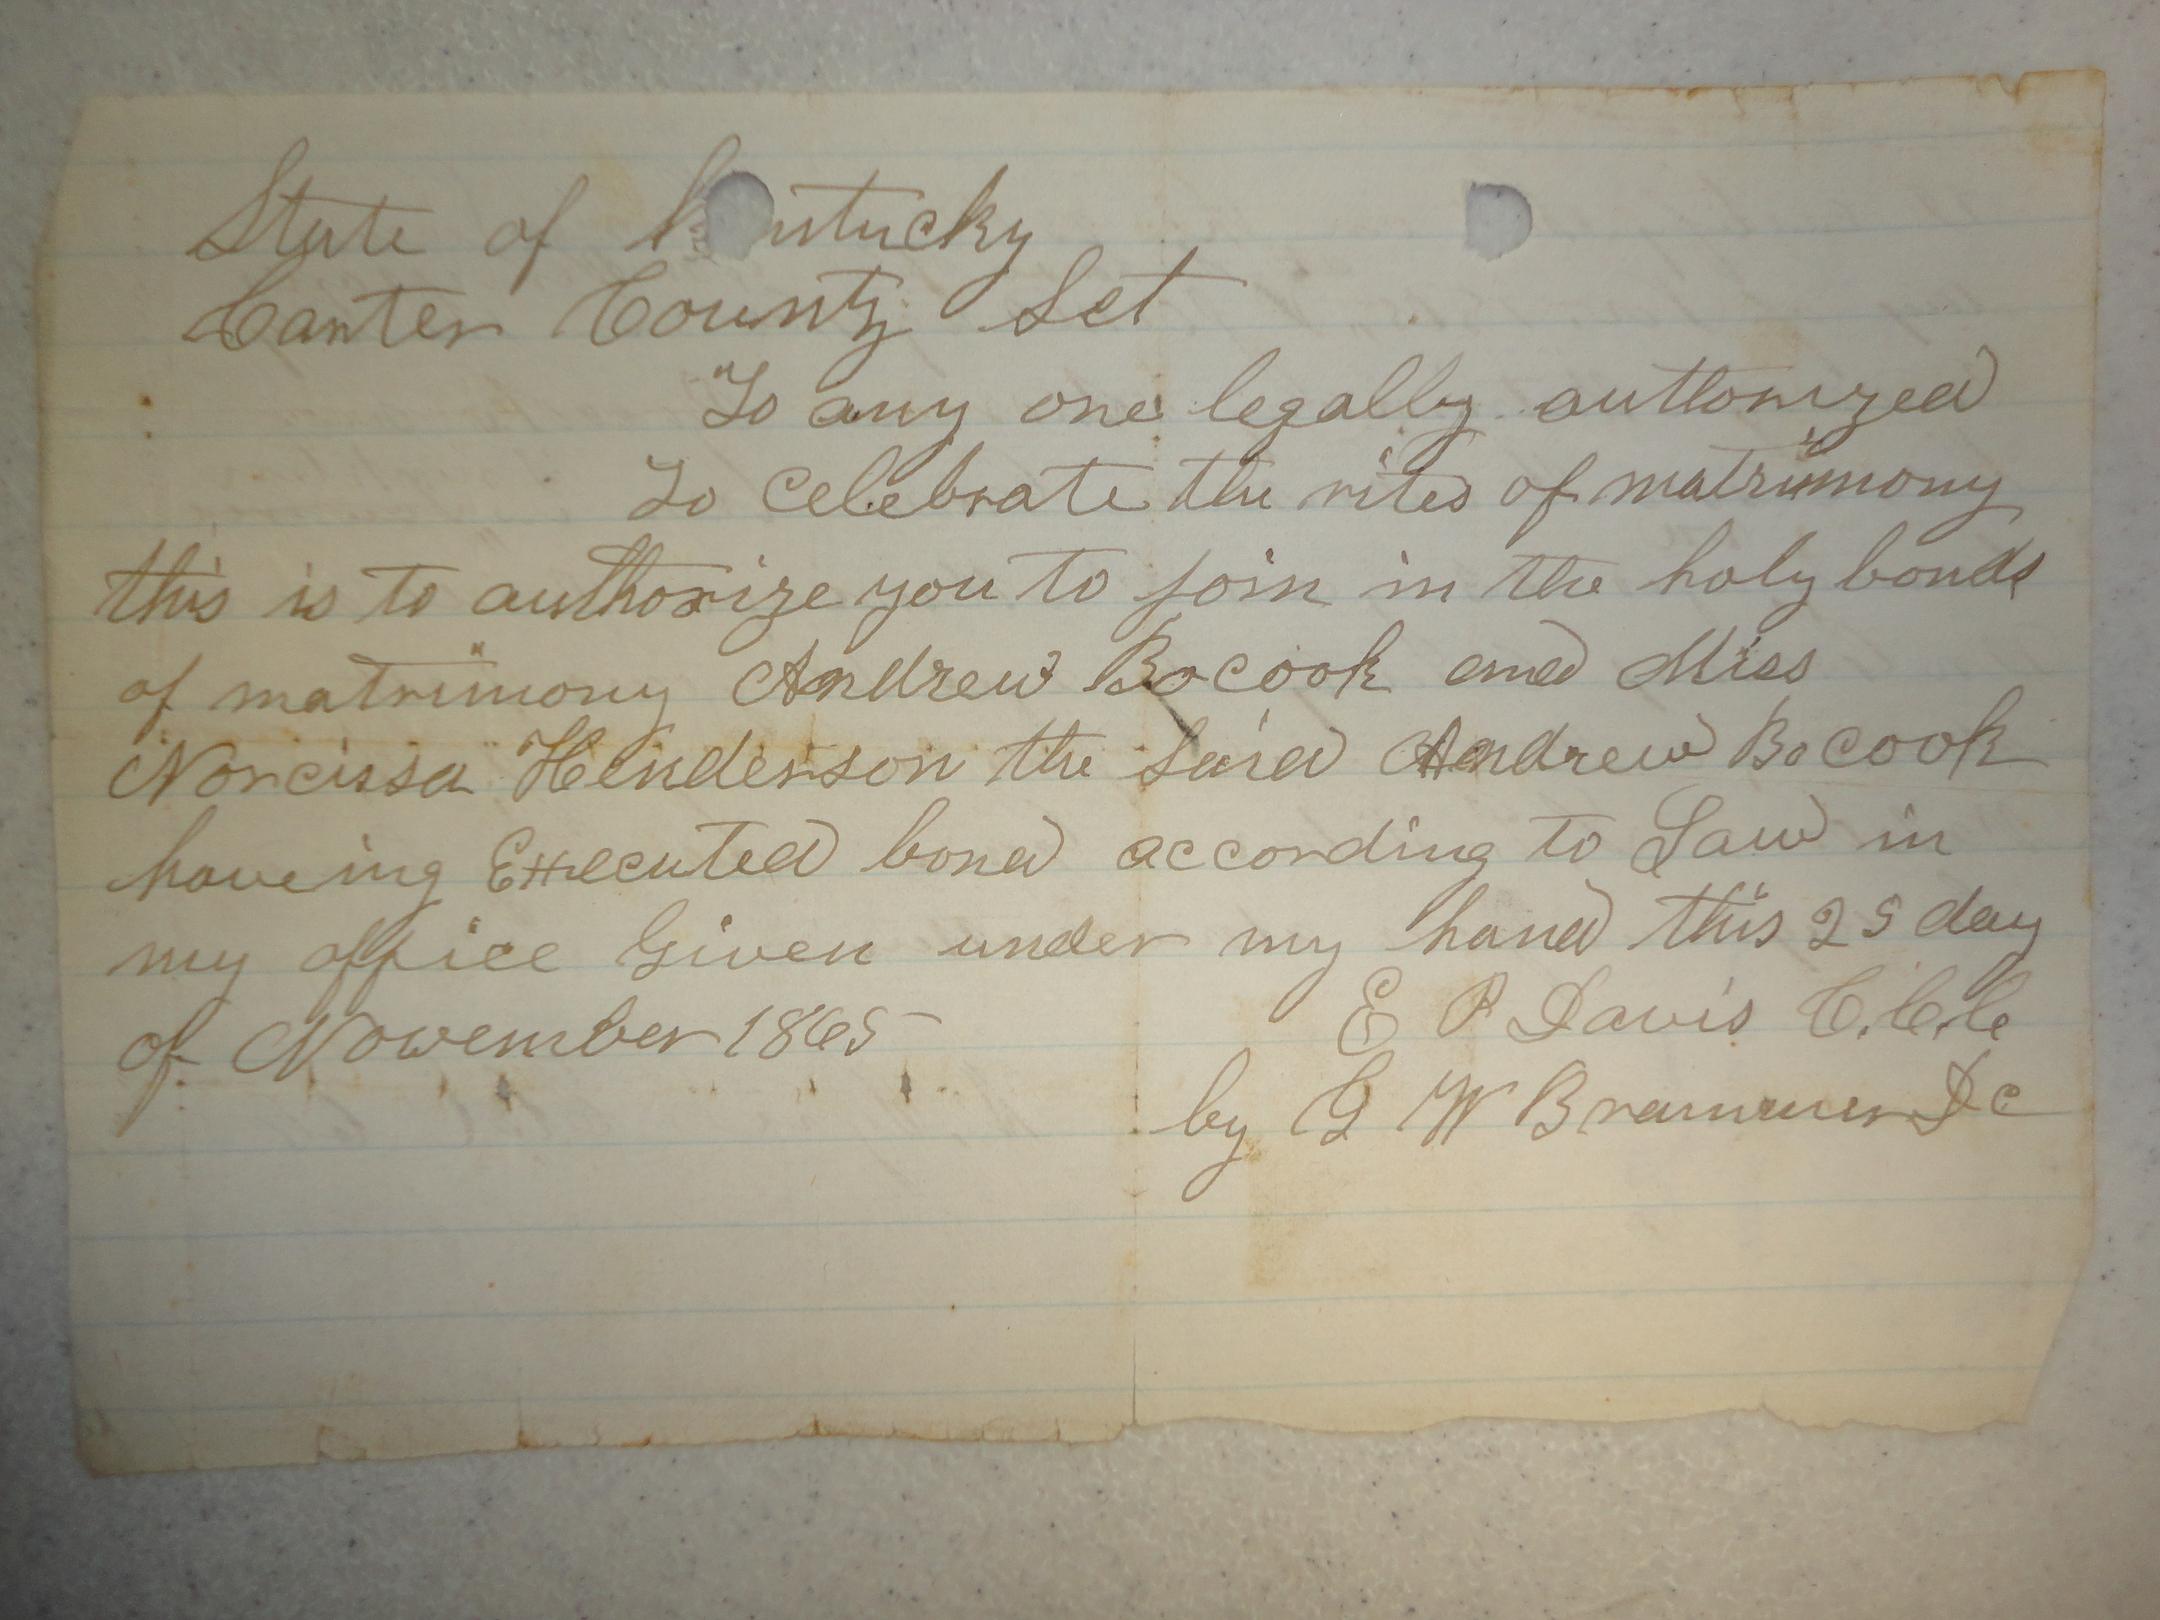 State of Kentucky
Carter County Sct
To any one legally authorized
To Celebrate the rites of matrimony
this is to authorize you to join in the holy bonds
of matrimony Andrew Bocook and Miss
Norcissa Henderson the Said Andrew Bocook
haveing Executed bond according to Law in
my office Given under my hand this 25 day
of November 1865
E P Davis C.C.C.
by G W Brammer D C